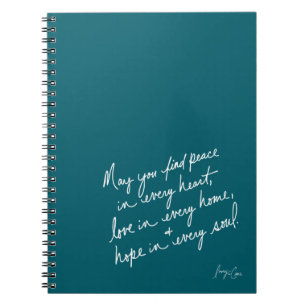 May you find peace
in every heart,
love in every home,
+
hope in every soul.